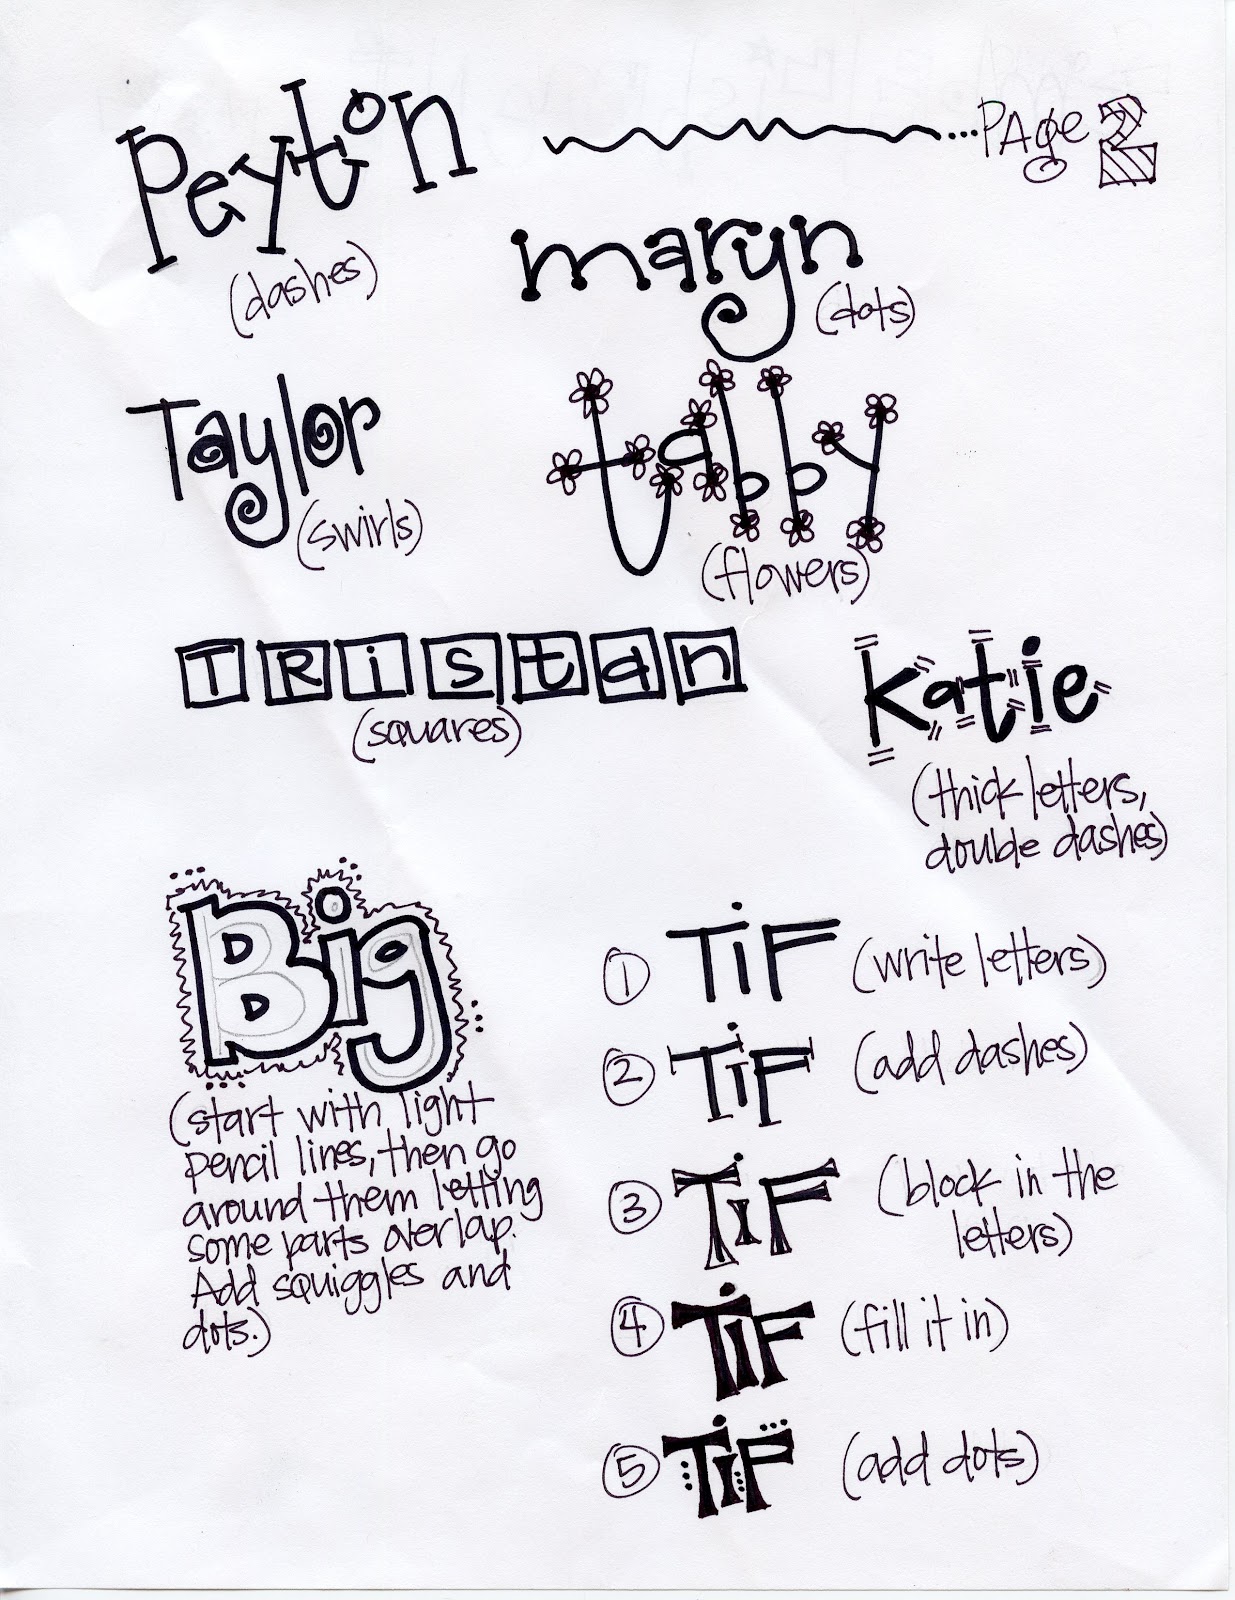 Peyton
...PAge 2
(dashes)
maryn
(dots)
Taylor
(swirls)
tabby
(flowers)
TRistan
(squares)
Katie
(thick letters,
double dashes)
Big
(start with light
pencil lines, then go
around them letting
some parts overlap.
Add squiggles and
dots.)
1 TiF (write letters)
2 TiF (add dashes)
3 TiF (block in the
letters)
4 TiF (fill it in)
5 TiF (add dots)